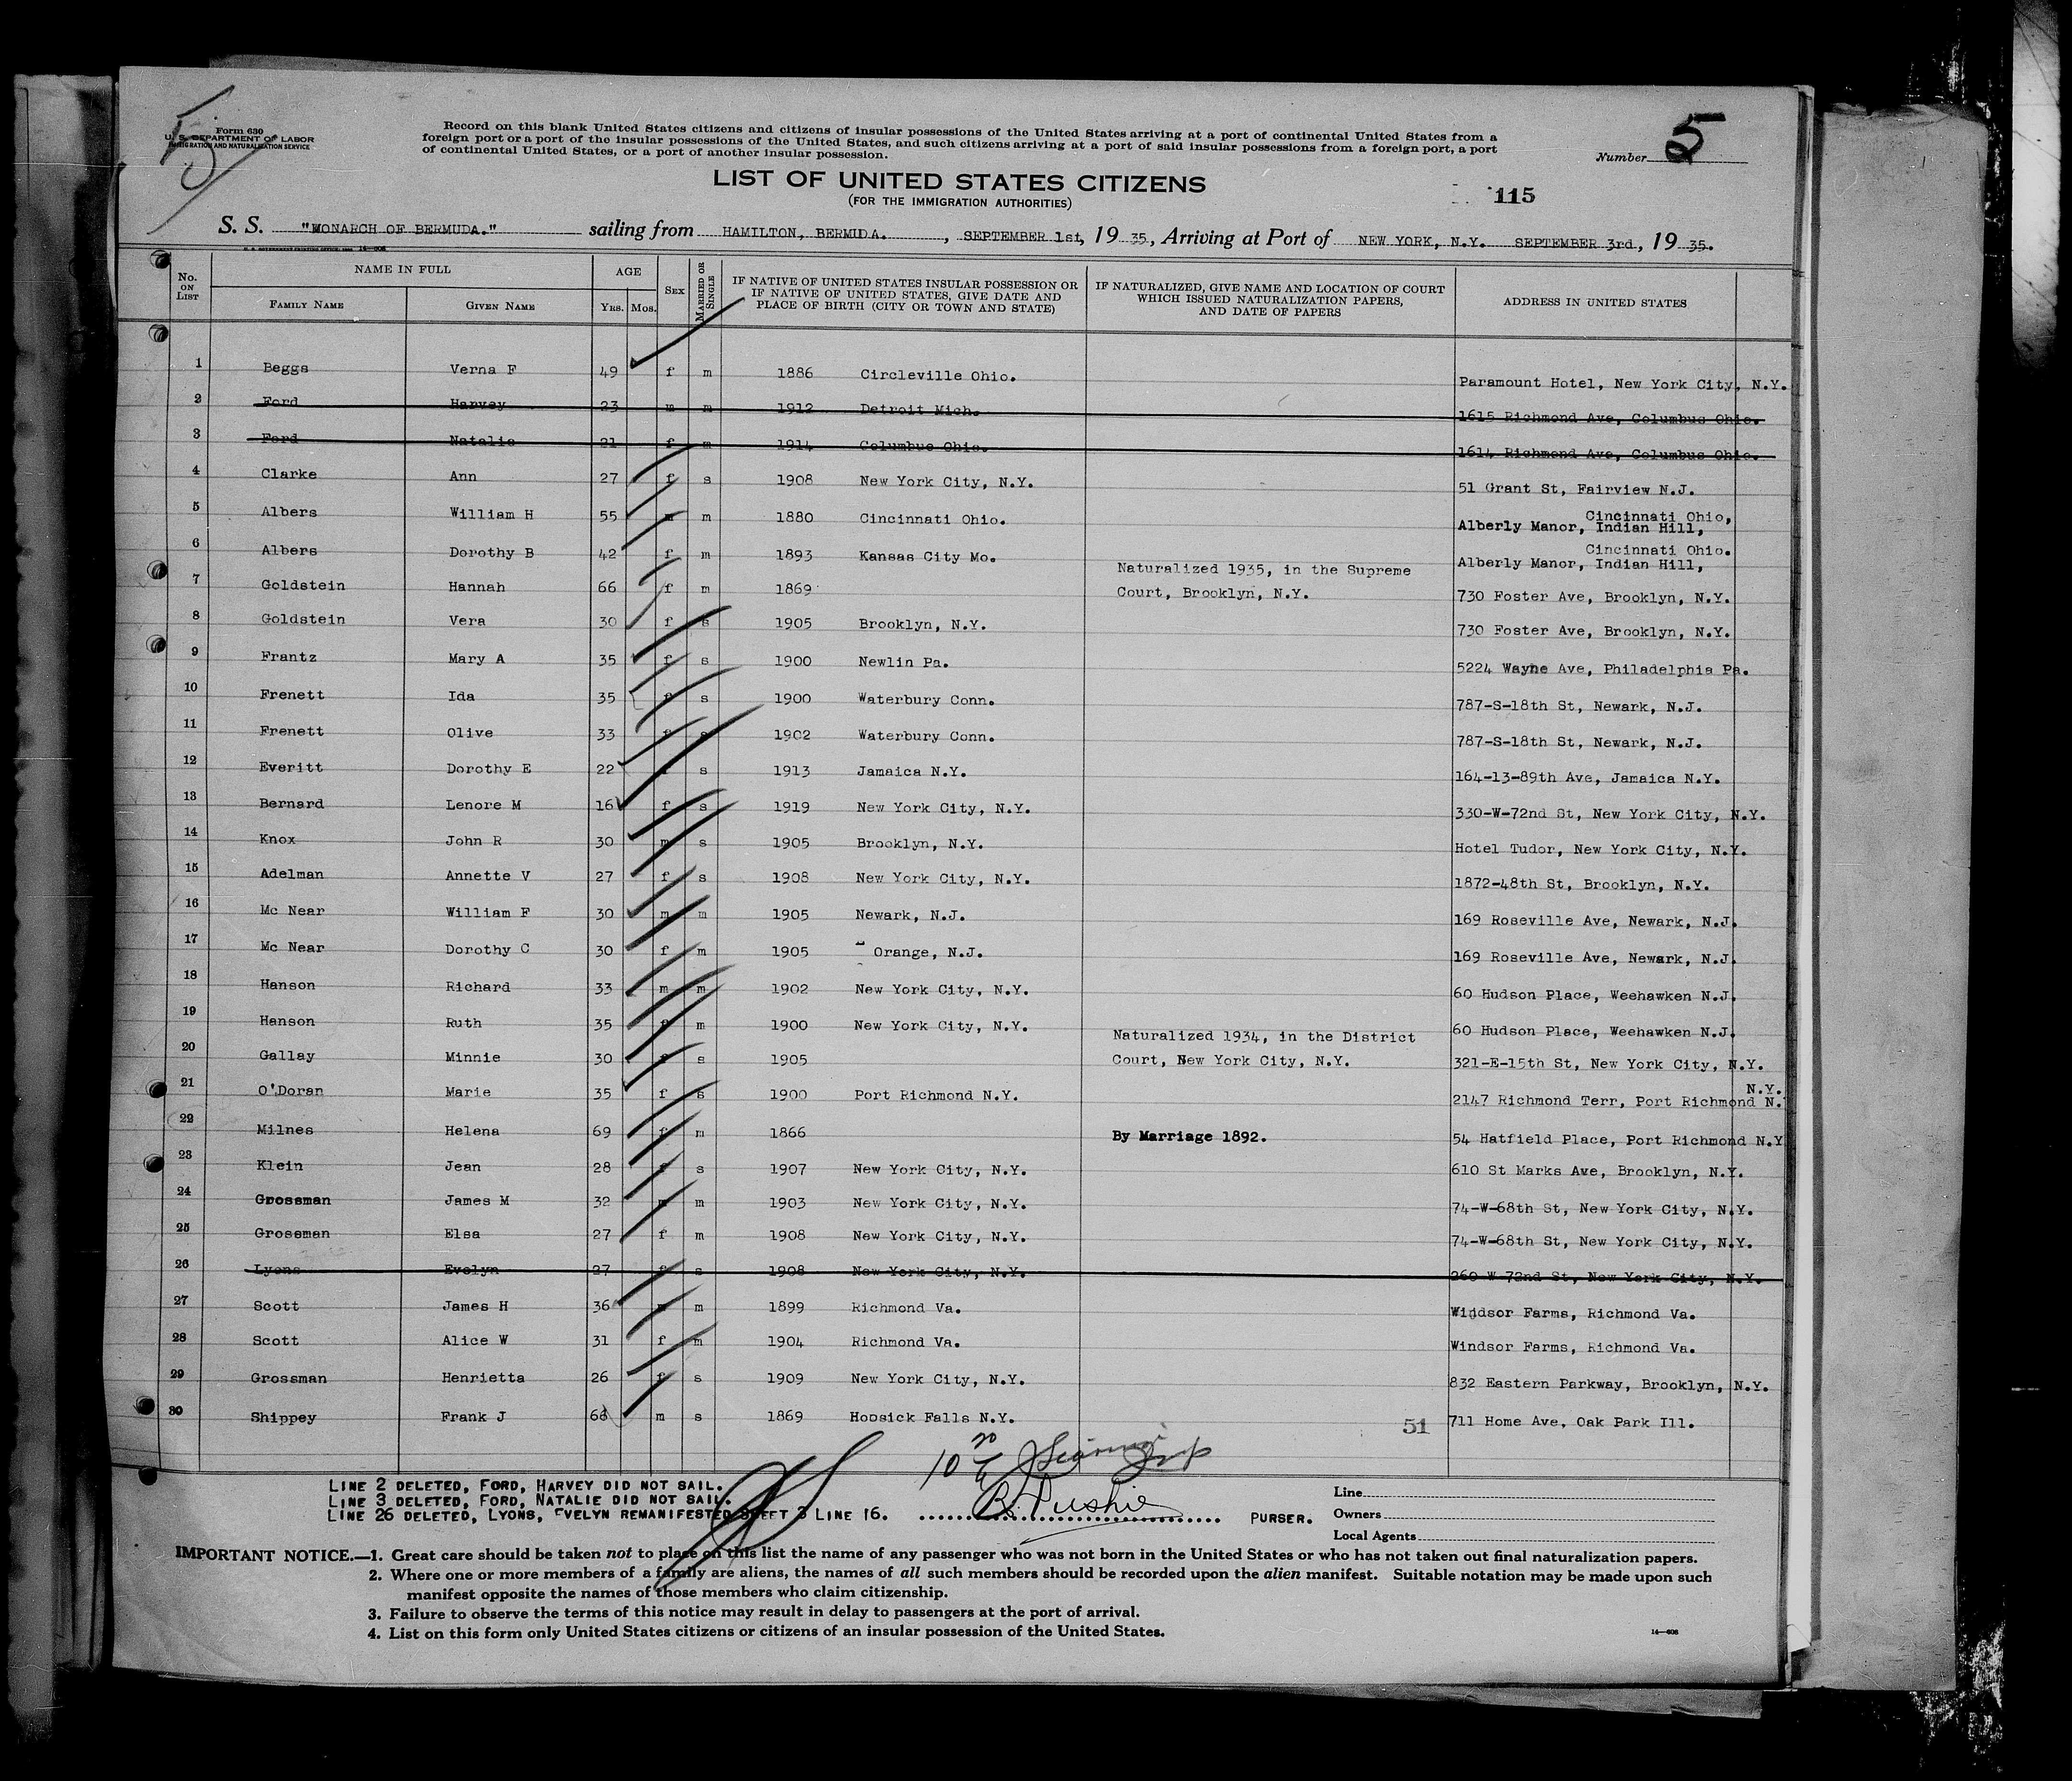 Form 630
U. S. DEPARTMENT OF LABOR
IMMIGRATION AND NATURALIZATION SERVICE
5
Record on this blank United States citizens and citizens of insular possessions of the United States arriving at a port of continental United States from a
foreign port or a port of the insular possessions of the United States, and such citizens arriving at a port of said insular possessions from a foreign port, a port
of continental United States, or a port of another insular possession.
Number 5
LIST OF UNITED STATES CITIZENS
(FOR THE IMMIGRATION AUTHORITIES)
115
S. S. "MONARCH OF BERMUDA." sailing from HAMILTON, BERMUDA. , SEPTEMBER 1st, 19 35, Arriving at Port of NEW YORK, N.Y. SEPTEMBER 3rd, 19 35.
No. ON LIST NAME IN FULL FAMILY NAME GIVEN NAME AGE YRS. MOS. SEX MARRIED OR SINGLE IF NATIVE OF UNITED STATES INSULAR POSSESSION OR IF NATIVE OF UNITED STATES, GIVE DATE AND PLACE OF BIRTH (CITY OR TOWN AND STATE) IF NATURALIZED, GIVE NAME AND LOCATION OF COURT WHICH ISSUED NATURALIZATION PAPERS, AND DATE OF PAPERS ADDRESS IN UNITED STATES
1 Beggs Verna F 49 f m 1886 Circleville Ohio. Paramount Hotel, New York City, N.Y.
2 Ford Harvey 23 m m 1912 Detroit Mich. 1615 Richmond Ave, Columbus Ohio.
3 Ford Natalie 21 f m 1914 Columbus Ohio. 1614 Richmond Ave, Columbus Ohio.
4 Clarke Ann 27 f s 1908 New York City, N.Y. 51 Grant St, Fairview N.J.
5 Albers William H 55 m m 1880 Cincinnati Ohio. Alberly Manor, Indian Hill, Cincinnati Ohio,
6 Albers Dorothy B 42 f m 1893 Kansas City Mo. Alberly Manor, Indian Hill, Cincinnati Ohio.
7 Goldstein Hannah 66 f m 1869 Naturalized 1935, in the Supreme Court, Brooklyn, N.Y. 730 Foster Ave, Brooklyn, N.Y.
8 Goldstein Vera 30 f s 1905 Brooklyn, N.Y. 730 Foster Ave, Brooklyn, N.Y.
9 Frantz Mary A 35 f s 1900 Newlin Pa. 5224 Wayne Ave, Philadelphia Pa.
10 Frenett Ida 35 f s 1900 Waterbury Conn. 787-S-18th St, Newark, N.J.
11 Frenett Olive 33 f s 1902 Waterbury Conn. 787-S-18th St, Newark, N.J.
12 Everitt Dorothy E 22 f s 1913 Jamaica N.Y. 164-13-89th Ave, Jamaica N.Y.
13 Bernard Lenore M 16 f s 1919 New York City, N.Y. 330-W-72nd St, New York City, N.Y.
14 Knox John R 30 m s 1905 Brooklyn, N.Y. Hotel Tudor, New York City, N.Y.
15 Adelman Annette V 27 f s 1908 New York City, N.Y. 1872-48th St, Brooklyn, N.Y.
16 Mc Near William F 30 m m 1905 Newark, N.J. 169 Roseville Ave, Newark, N.J.
17 Mc Near Dorothy C 30 f m 1905 Orange, N.J. 169 Roseville Ave, Newark, N.J.
18 Hanson Richard 33 m m 1902 New York City, N.Y. 60 Hudson Place, Weehawken N.J.
19 Hanson Ruth 35 f m 1900 New York City, N.Y. 60 Hudson Place, Weehawken N.J.
20 Gallay Minnie 30 f s 1905 Naturalized 1934, in the District Court, New York City, N.Y. 321-E-15th St, New York City, N.Y.
21 O'Doran Marie 35 f s 1900 Port Richmond N.Y. 2147 Richmond Terr, Port Richmond N.Y.
22 Milnes Helena 69 f m 1866 By Marriage 1892. 54 Hatfield Place, Port Richmond N.Y
23 Klein Jean 28 f s 1907 New York City, N.Y. 610 St Marks Ave, Brooklyn, N.Y.
24 Grossman James M 32 m m 1903 New York City, N.Y. 74-W-68th St, New York City, N.Y.
25 Grossman Elsa 27 f m 1908 New York City, N.Y. 74-W-68th St, New York City, N.Y.
26 Lyons Evelyn 27 f s 1908 New York City, N.Y. 260 W 72nd St, New York City, N.Y.
27 Scott James H 36 m m 1899 Richmond Va. Windsor Farms, Richmond Va.
28 Scott Alice W 31 f m 1904 Richmond Va. Windsor Farms, Richmond Va.
29 Grossman Henrietta 26 f s 1909 New York City, N.Y. 832 Eastern Parkway, Brooklyn, N.Y.
30 Shippey Frank J 66 m s 1869 Hoosick Falls N.Y. 711 Home Ave, Oak Park Ill.
51
LINE 2 DELETED, FORD, HARVEY DID NOT SAIL.
LINE 3 DELETED, FORD, NATALIE DID NOT SAIL.
LINE 26 DELETED, LYONS, EVELYN REMANIFESTED SHEET 3 LINE 16. PURSER.
Line
Owners
Local Agents
IMPORTANT NOTICE.—1. Great care should be taken not to place on this list the name of any passenger who was not born in the United States or who has not taken out final naturalization papers.
2. Where one or more members of a family are aliens, the names of all such members should be recorded upon the alien manifest. Suitable notation may be made upon such
manifest opposite the names of those members who claim citizenship.
3. Failure to observe the terms of this notice may result in delay to passengers at the port of arrival.
4. List on this form only United States citizens or citizens of an insular possession of the United States.
14—608